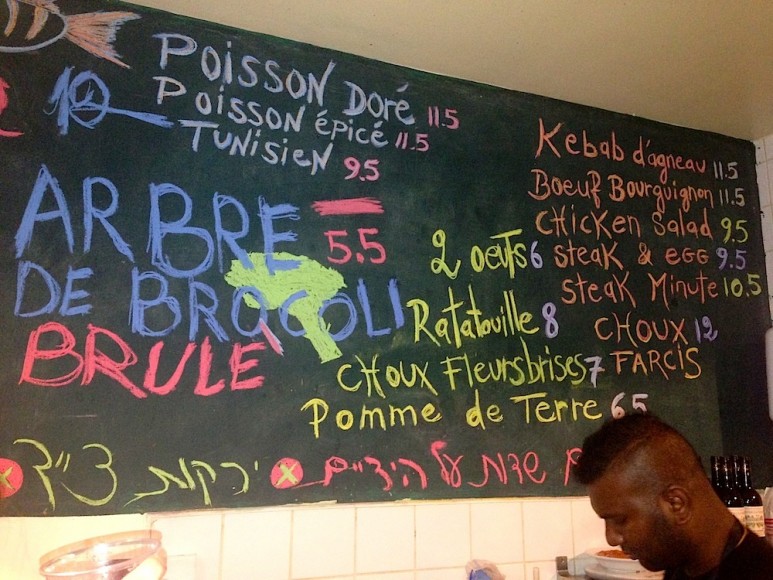 POISSON DORÉ 11.5
POISSON épicé 11.5
TUNiSiEN 9.5
ARBRE 5.5
DE BROCOLI
BRULÉ
Kebab d'agneau 11.5
Boeuf Bourguignon 11.5
CHicKen Salad 9.5
2 oeufs 6
steak & egg 9.5
steak Minute 10.5
Ratatouille 8
CHOUX 12
FARCIS
CHOUX Fleurs brises 7
Pomme de Terre 6.5
שדות על הידיים
ירקות